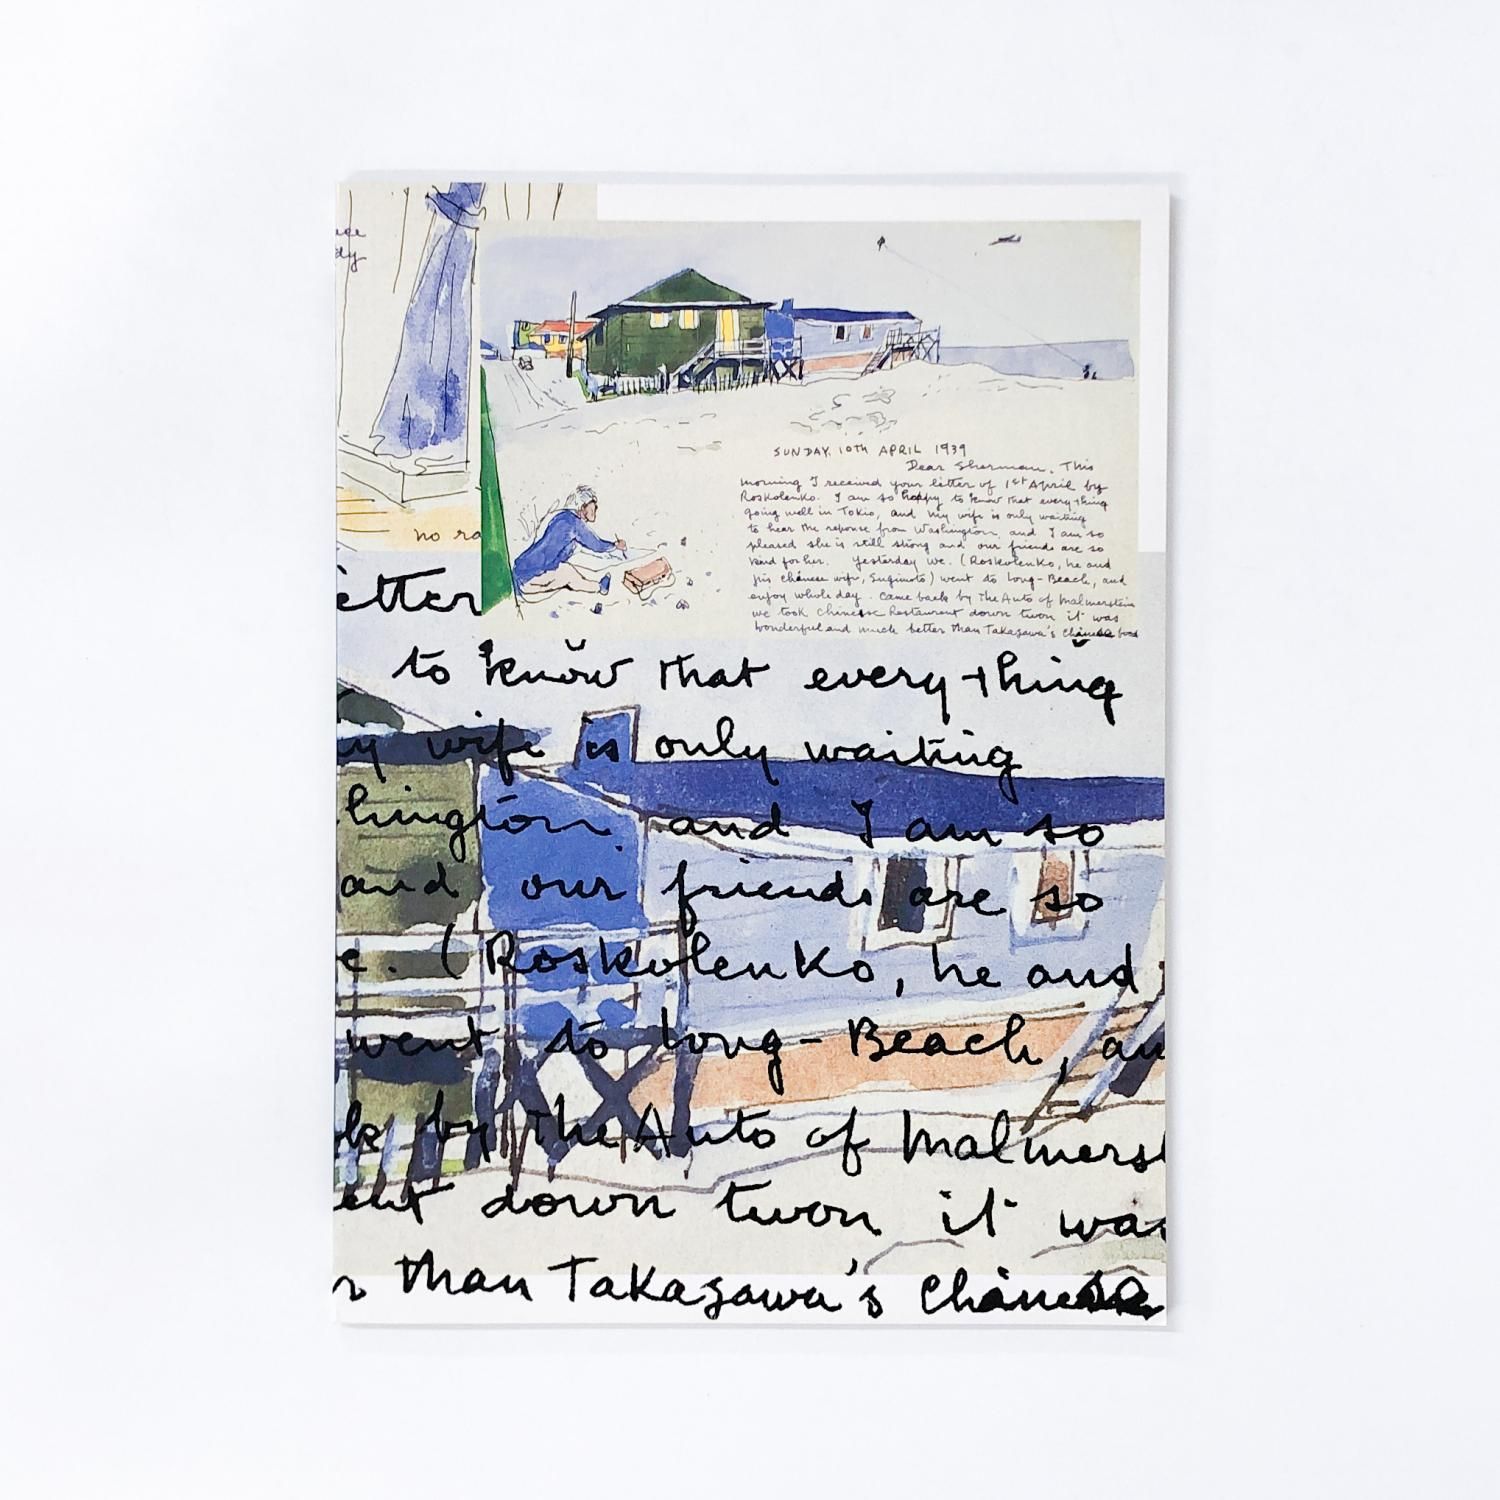 dy
no ra
SUNDAY, 10TH APRIL 1939
Dear Sherman, This
morning I received your letter of 1st April by
Roskolenko. I am so happy to know that every-thing
going well in Tokio, and my wife is only waiting
to hear the reponse from Washington, and I am so
pleased she is still strong and our friends are so
kind for her. Yesterday we. (Roskolenko, he and
his chinese wife, Sugimoto) went to Long-Beach, and
enjoy whole day. Came back by the Auto of Malmerstein
we took Chinese Restaurent down twon it was
wonderful and much better than Takagawa's Chinese food
etter
to know that every-thing
my wife is only waiting
hington and I am so
and our friends are so
e. (Roskolenko, he and
went to Long-Beach, an
k by The Auto of Malmerst
ent down twon it was
r than Takagawa's Chinese